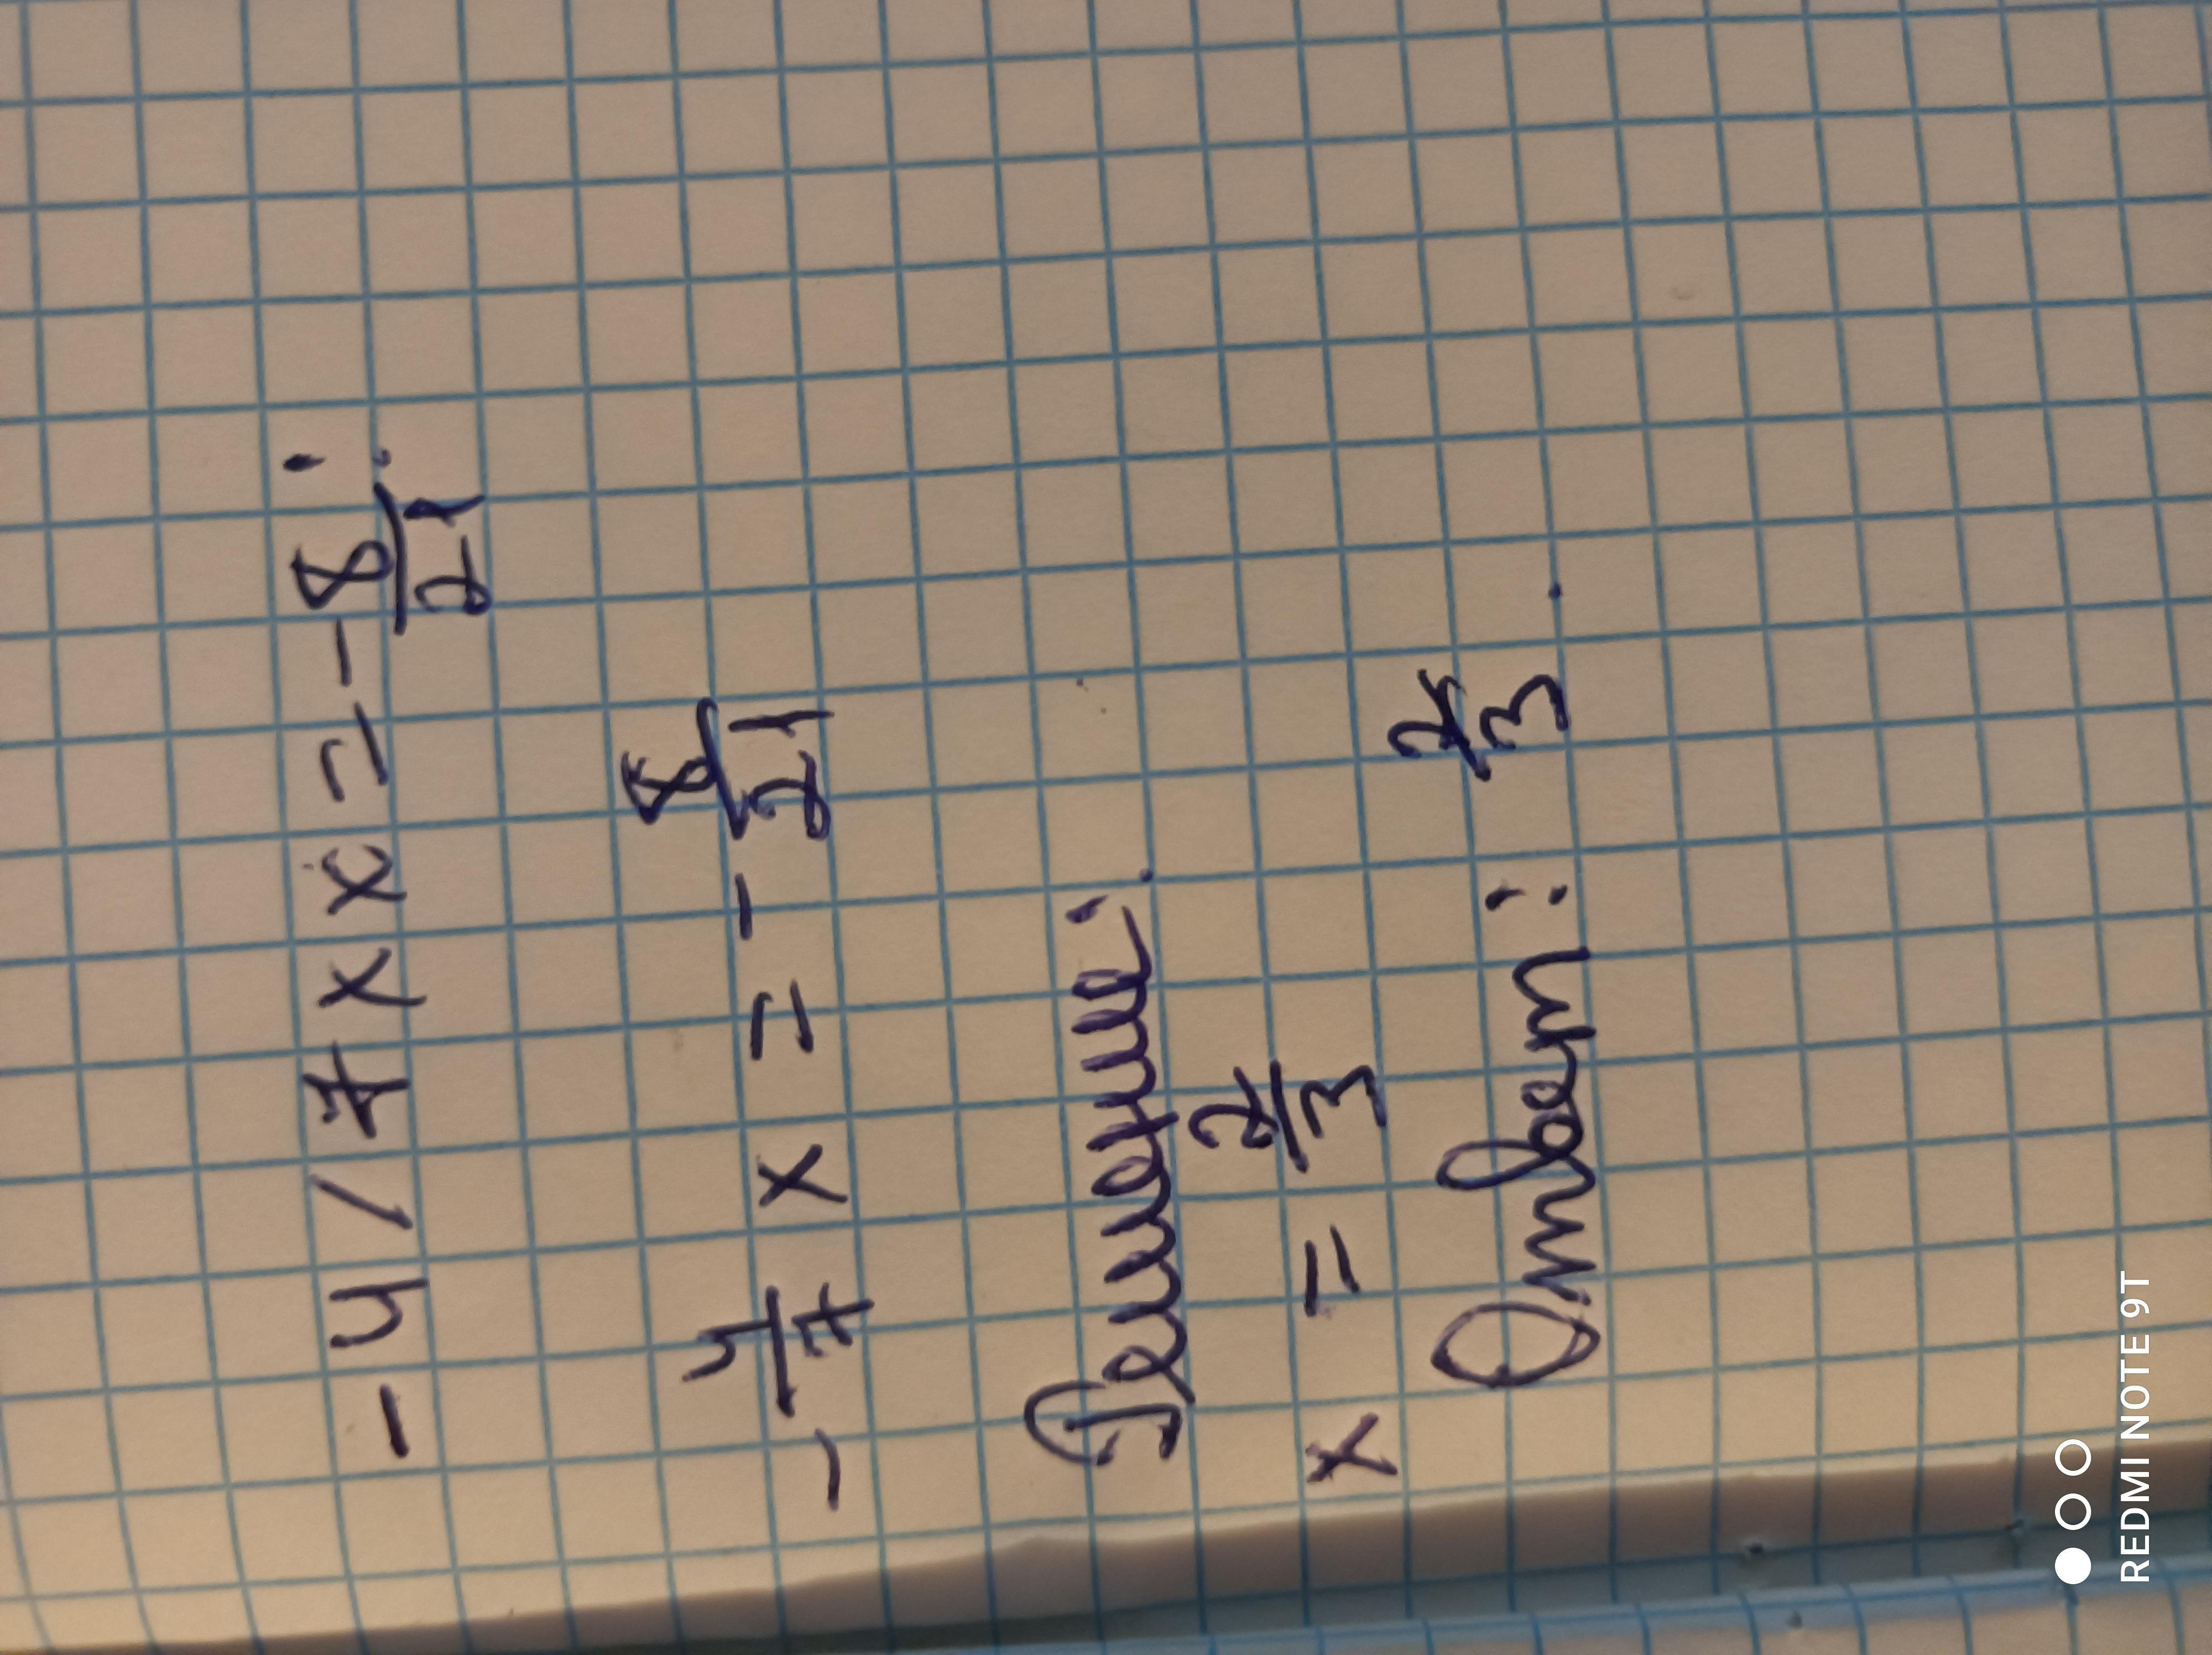 - 4 / 7 x x = - 8/21 ;
- 4/7 x = - 8/21
Решение:
x = 2/3
Ответ: 2/3 .
REDMI NOTE 9T